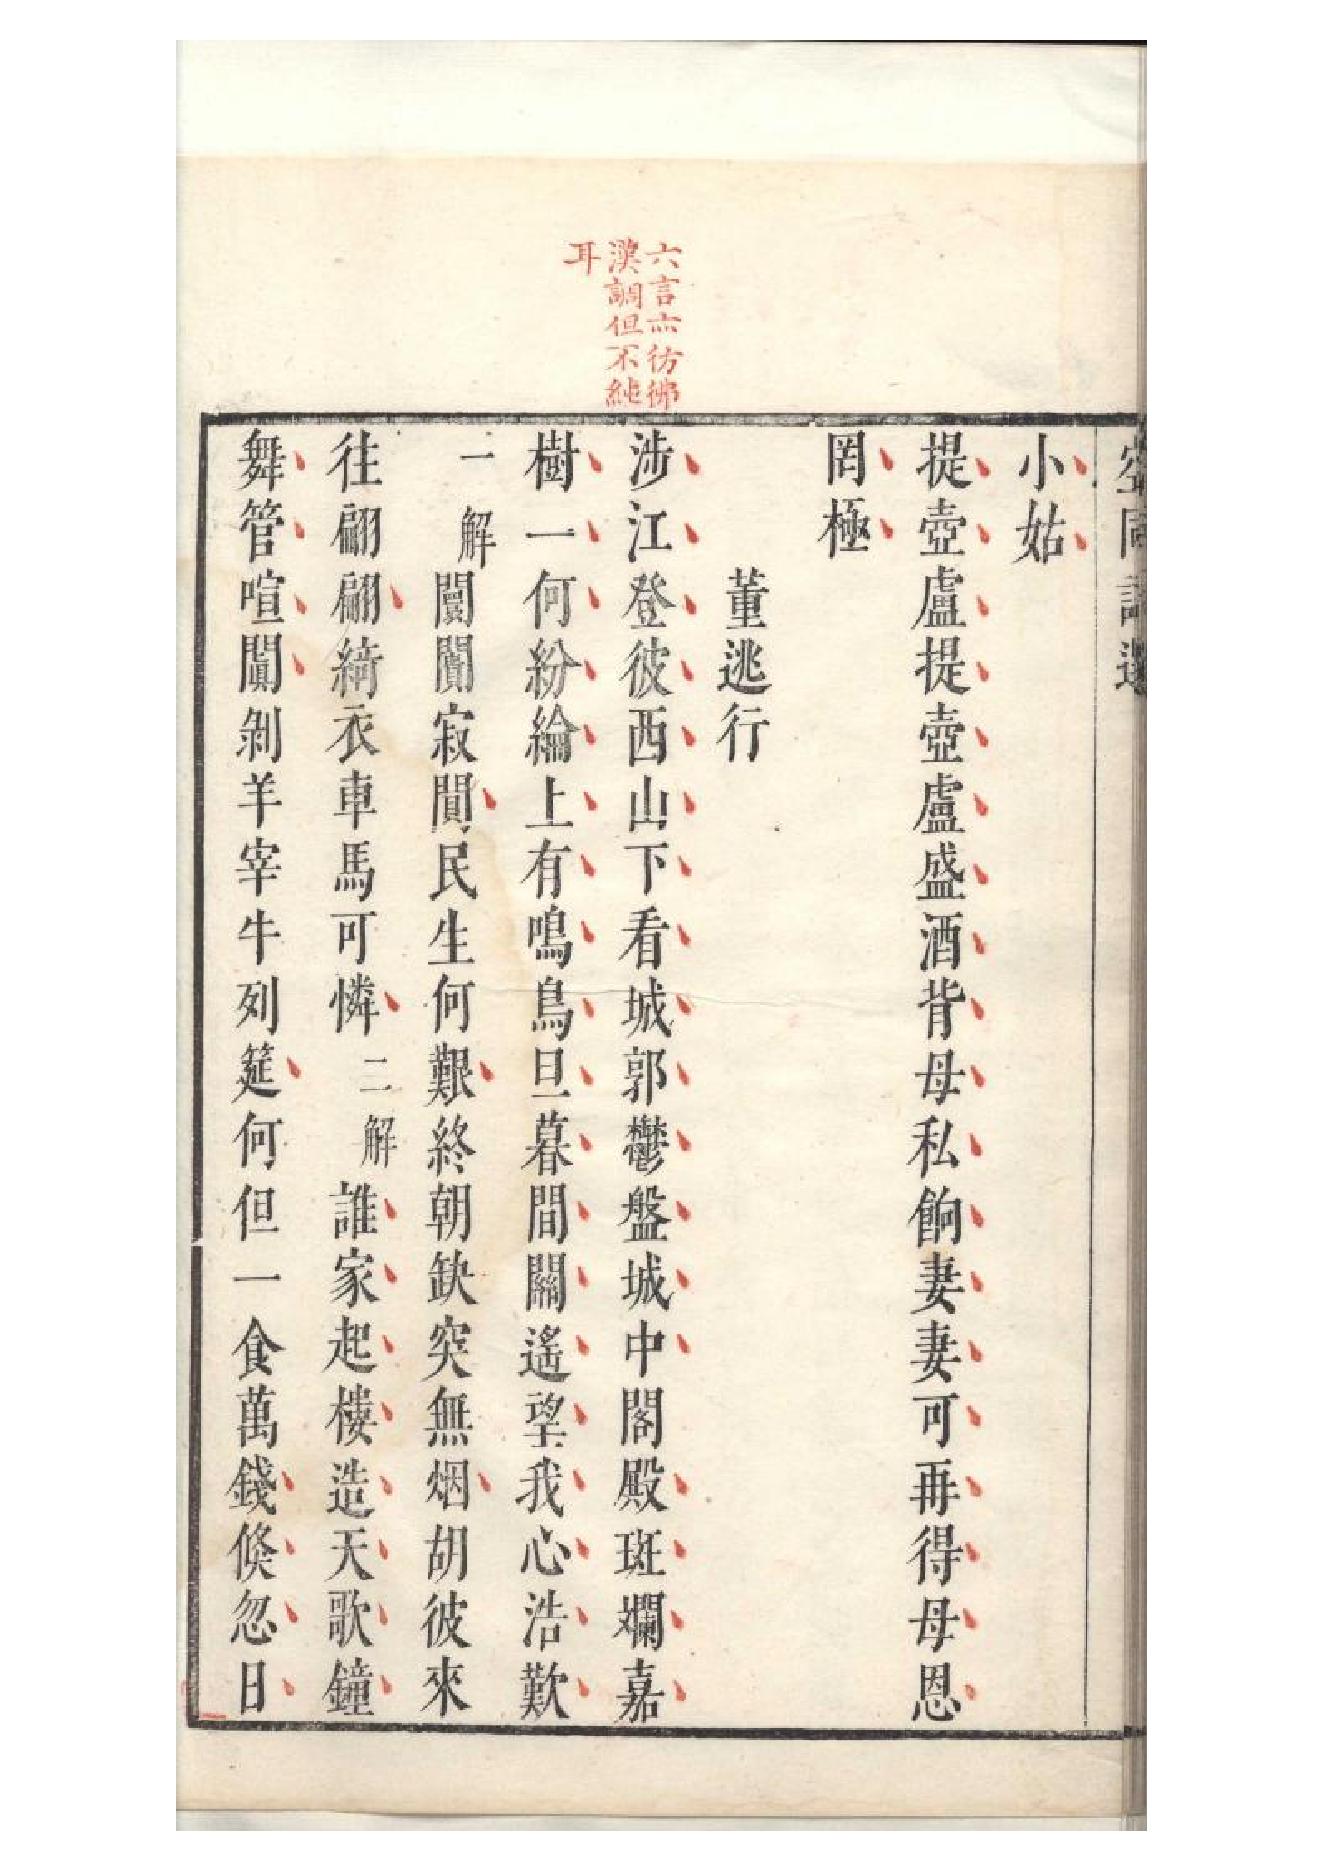 空同詩選
小姑
提壺盧提壺盧盛酒背母私餉妻妻可再得母恩
罔極
董逃行
六言亦彷彿
漢調但不純
耳
涉江登彼西山下看城郭鬱盤城中閣殿斑斕嘉
樹一何紛綸上有鳴鳥旦暮間關遙望我心浩歎
一解 闤闠寂閴民生何艱終朝缺突無烟胡彼來
往翩翩綺衣車馬可憐 二解 誰家起樓造天歌鐘
舞管喧闐剝羊宰牛列筵何但一食萬錢倏忽日